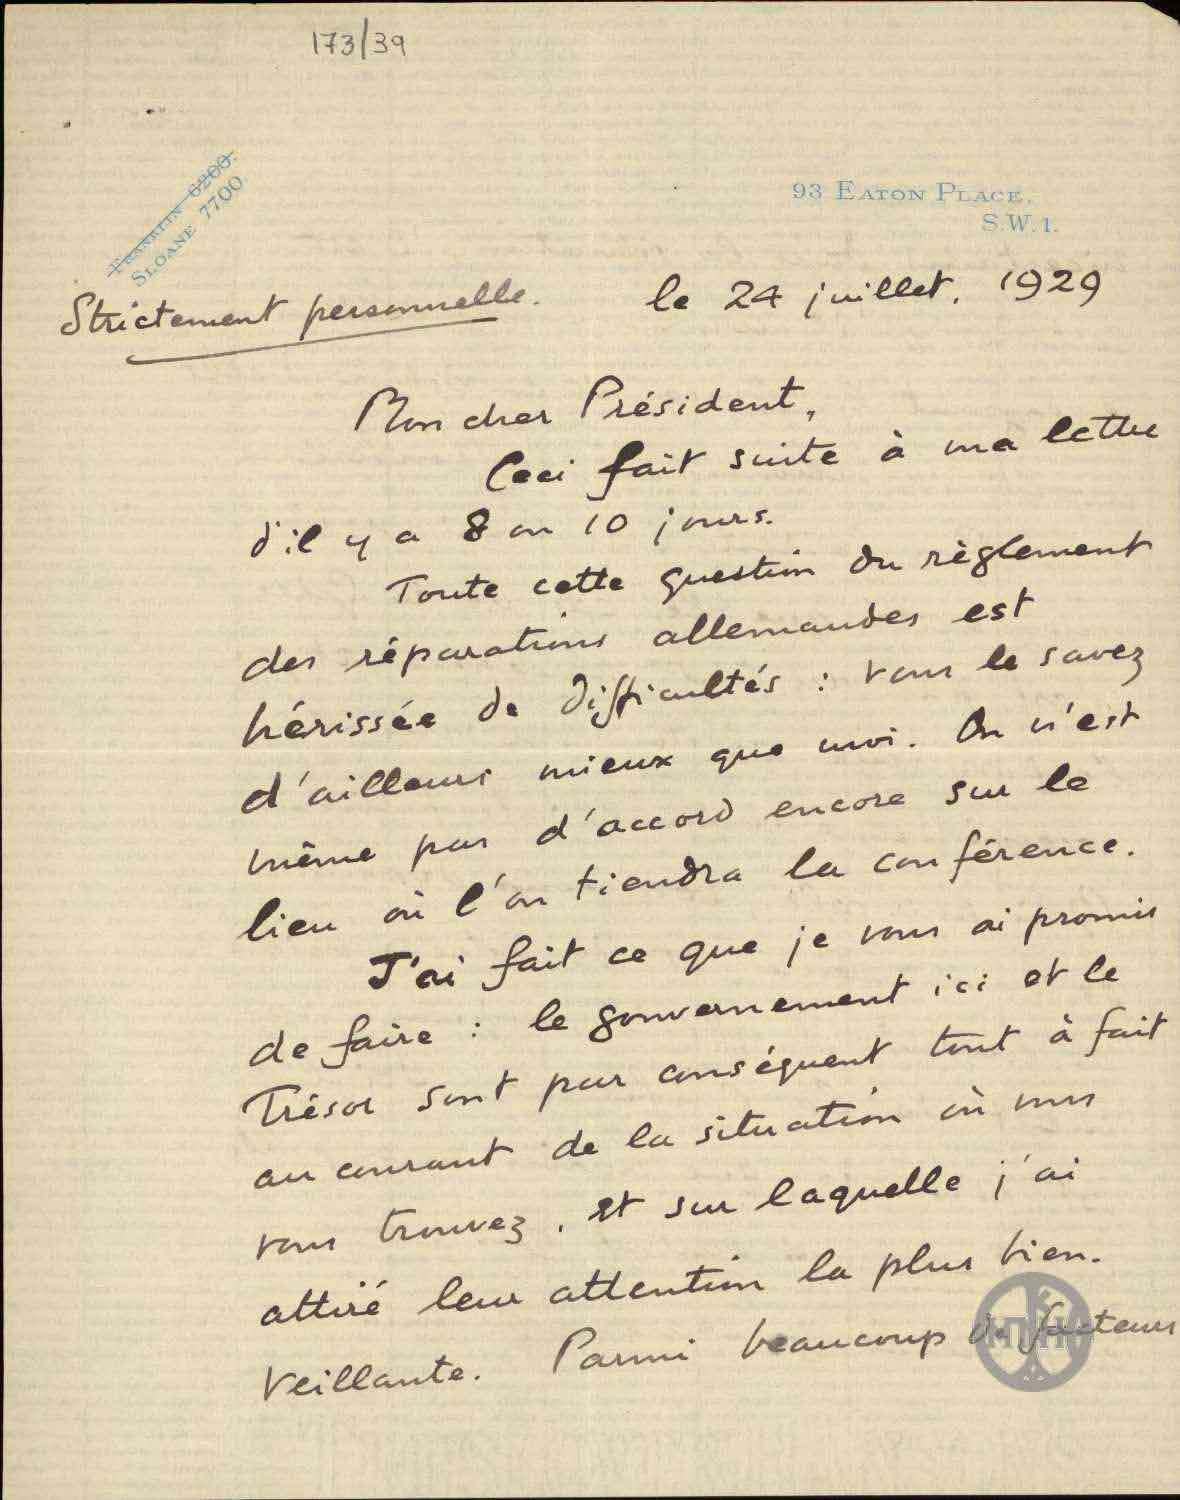 173/39
FRANKLIN 6200.
SLOANE 7700
93 EATON PLACE.
S.W.1.
Strictement personnelle.
le 24 juillet, 1929
Mon cher Président,
Ceci fait suite à ma lettre
d'il y a 8 ou 10 jours.
Toute cette question du règlement
des réparations allemandes est
hérissée de difficultés : vous le savez
d'ailleurs mieux que moi. On n'est
même pas d'accord encore sur le
lieu où l'on tiendra la conférence.
J'ai fait ce que je vous ai promis
de faire : le gouvernement ici et le
Trésor sont par conséquent tout à fait
au courant de la situation où nous
vous trouvez, et sur laquelle j'ai
attiré leur attention la plus bien.
veillante. Parmi beaucoup de facteurs